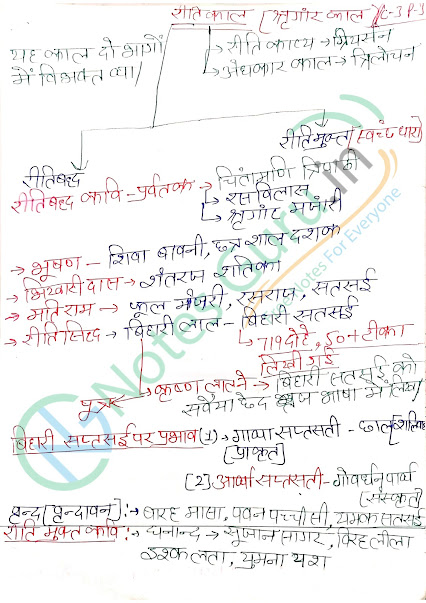 रीतिकाल (श्रृगांर काल) C-3 P-3
यह काल दो भागों में विभक्त था।
→ रीति काव्य → ग्रियर्सन
→ अंधकार काल → त्रिलोचन
रीतिबद्ध
रीतिमुक्त (स्वच्छंद धारा)
रीतिबद्ध कवि - प्रर्वतक → चिंतामणि त्रिपाठी
→ रस विलास
→ श्रृगांर मंजरी
→ भूषण - शिवा बावनी, छत्रशाल दशक
→ भिखारी दास → शंतरज शतिका
→ मतिराम → फूल मंजरी, रसराज, सतसई
→ रीतिसिद्ध → बिहारी लाल - बिहारी सतसई
→ 719 दोहे, 50+ टीका
लिखी गई
पुत्र
→ कृष्ण लाल ने → बिहारी सतसई को
सवैया छंद ब्रज भाषा में लिखा
बिहारी सप्तसई पर प्रभाव (1) → गाथा सप्तसती -
[प्राकृत]
(2) आर्या सप्तसती - गोवर्धनाचार्य
(संस्कृत)
वृन्द [वृन्दावन] :→ बारह मासा, पवन पच्चीसी, यमक सतसई
रीति मुक्त कवि :→ घनानन्द → सुजान सागर, विरह लीला
इश्कलता, युमना यश
Notes Guru.in
Notes For Everyone